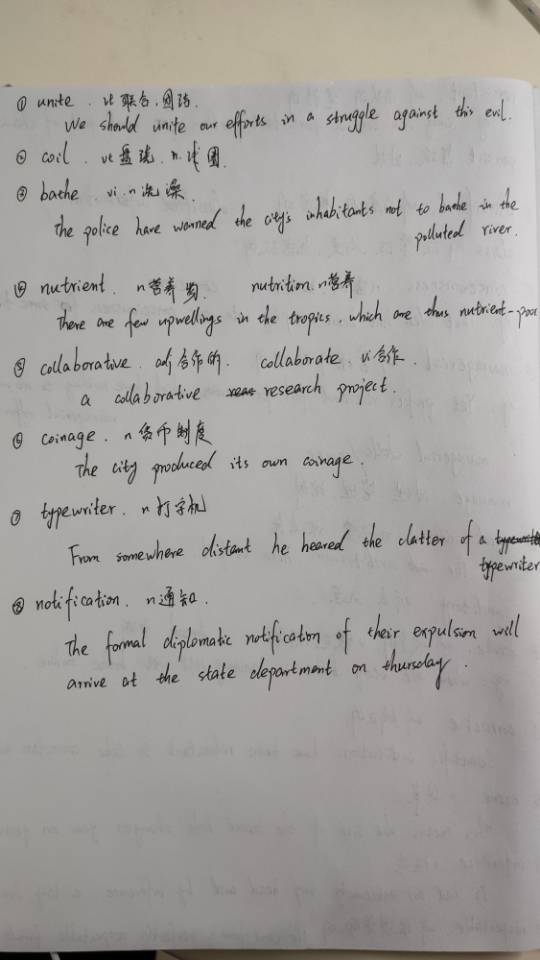 ① unite. vt 联合.团结.
We should unite our efforts in a struggle against this evil.
② coil. vt 盘绕. n. 线圈.
③ bathe vi. n 洗澡.
The police have warned the city's inhabitants not to bathe in the
polluted river.
④ nutrient. n 营养物. nutrition. n 营养
There are few upwellings in the tropics. which are thus nutrient-poor
⑤ collaborative. adj 合作的. collaborate vi 合作.
a collaborative research project.
⑥ coinage. n 货币制度
The city produced its own coinage.
⑦ typewriter. n 打字机
From somewhere distant he heared the clatter of a
typewriter
⑧ notification. n 通知.
The formal diplomatic notification of their expulsion will
arrive at the state department on thursday.